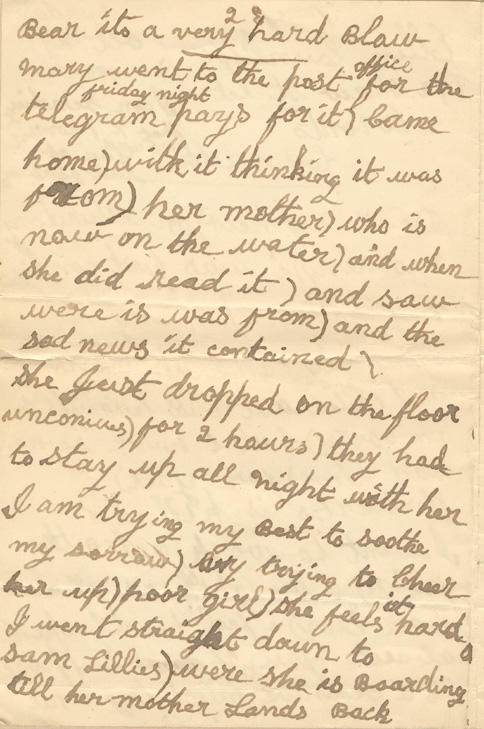 2
Bear its a very hard Blaw
mary went to the post office for the
telegram friday night pays for it) Came
home) with it thinking it was
from) her mother) who is
now on the water) and when
she did read it ) and saw
were is was from) and the
sad news it contained )
she Just dropped on the floor
unconius) for 2 hours) they had
to stay up all night with her
I am trying my Best to soothe
my sorrow) by trying to Cheer
her up) poor girl) she feels it hard
I went straight down to
Sam Lillies) were she is Boarding
till her mother Lands Back